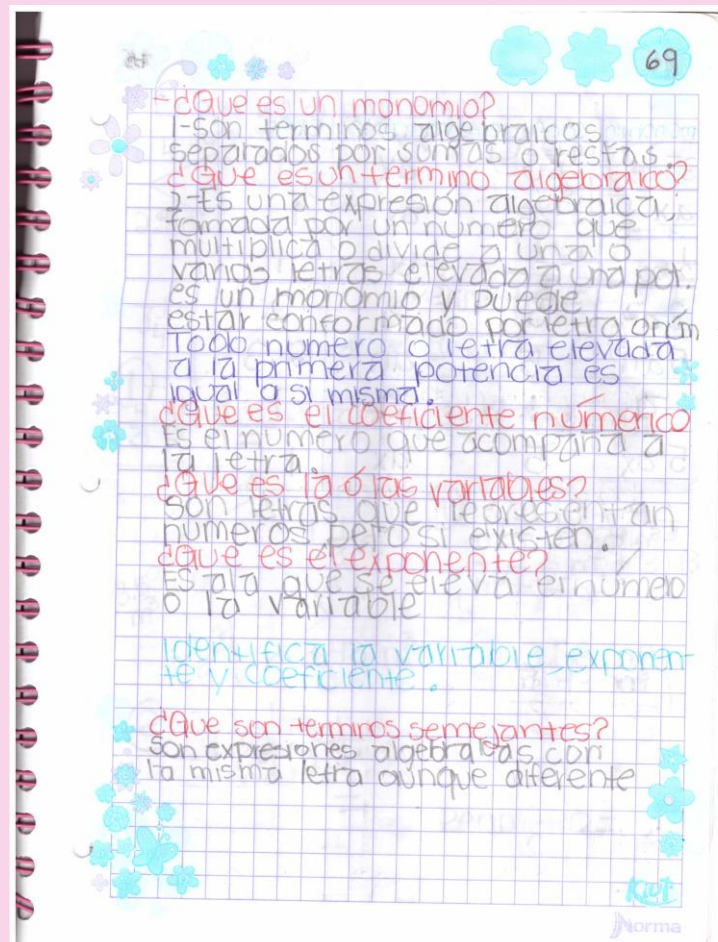 69
-¿Que es un monomio?
1-son terminos algebraicos
separados por sumas o restas.
¿Que es un termino algebraico?
2-Es una expresión algebraica,
formada por un numero que
multiplica o divide a una o
varios letras elevada a una pot.
es un monomio y puede
estar conformado por letra o núm
Todo numero o letra elevada
a la primera potencia es
igual a si misma.
¿Que es el coeficiente númerico
Es el numero que acompaña a
la letra.
¿Que es la o las variables?
Son letras que representan
numeros pero si existen.
¿Que es el exponente?
Es ala que se eleva el número
o la variable
Identifica la variable, exponen-
te y coeficiente.
¿Que son terminos semejantes?
Son expresiones algebraicas con
la misma letra aunque diferente
Kiut
Norma